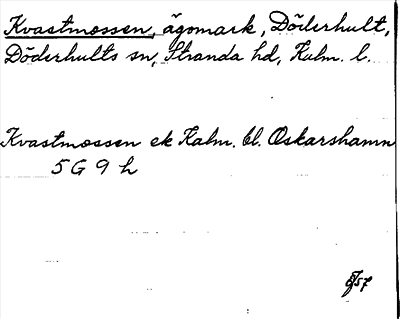 Kvastmossen, ägomark, Döderhult,
Döderhults sn, Stranda hd, Kalm. l.
Kvastmossen ek Kalm. bl. Oskarshamn
5 G 9 h